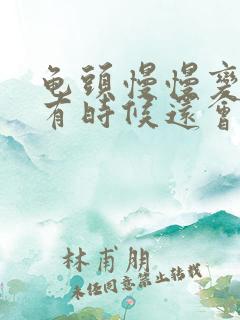 龟頭慢慢變
有時候還會
林甫朋
未经同意禁止转载